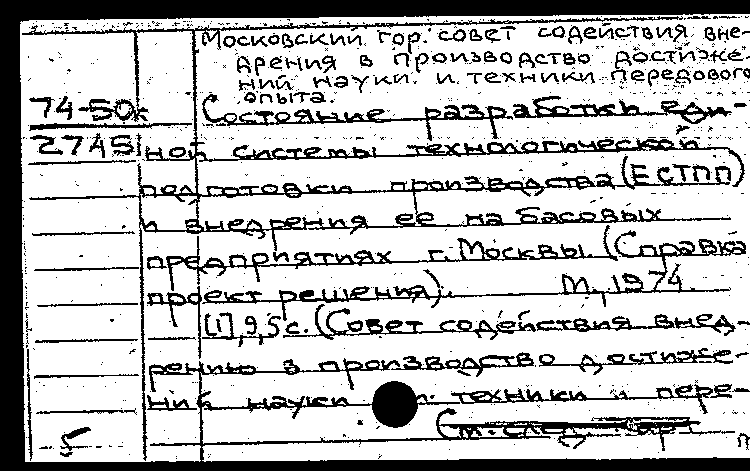 Московский гор. совет содействия вне-
дрения в производство достиже-
ний науки и техники передового
опыта.
74-50к Состояние разработки еди-
27451 ной системы технологической
подготовки производства (ЕСТПП)
и внедрения ее на басовых
предприятиях г. Москвы. (Справка
проект решения). М., 1974.
[1], 9, 5 с. (Совет содействия внед-
рению в производство достиже-
ний науки и техники и пере-
5 См. след. карт